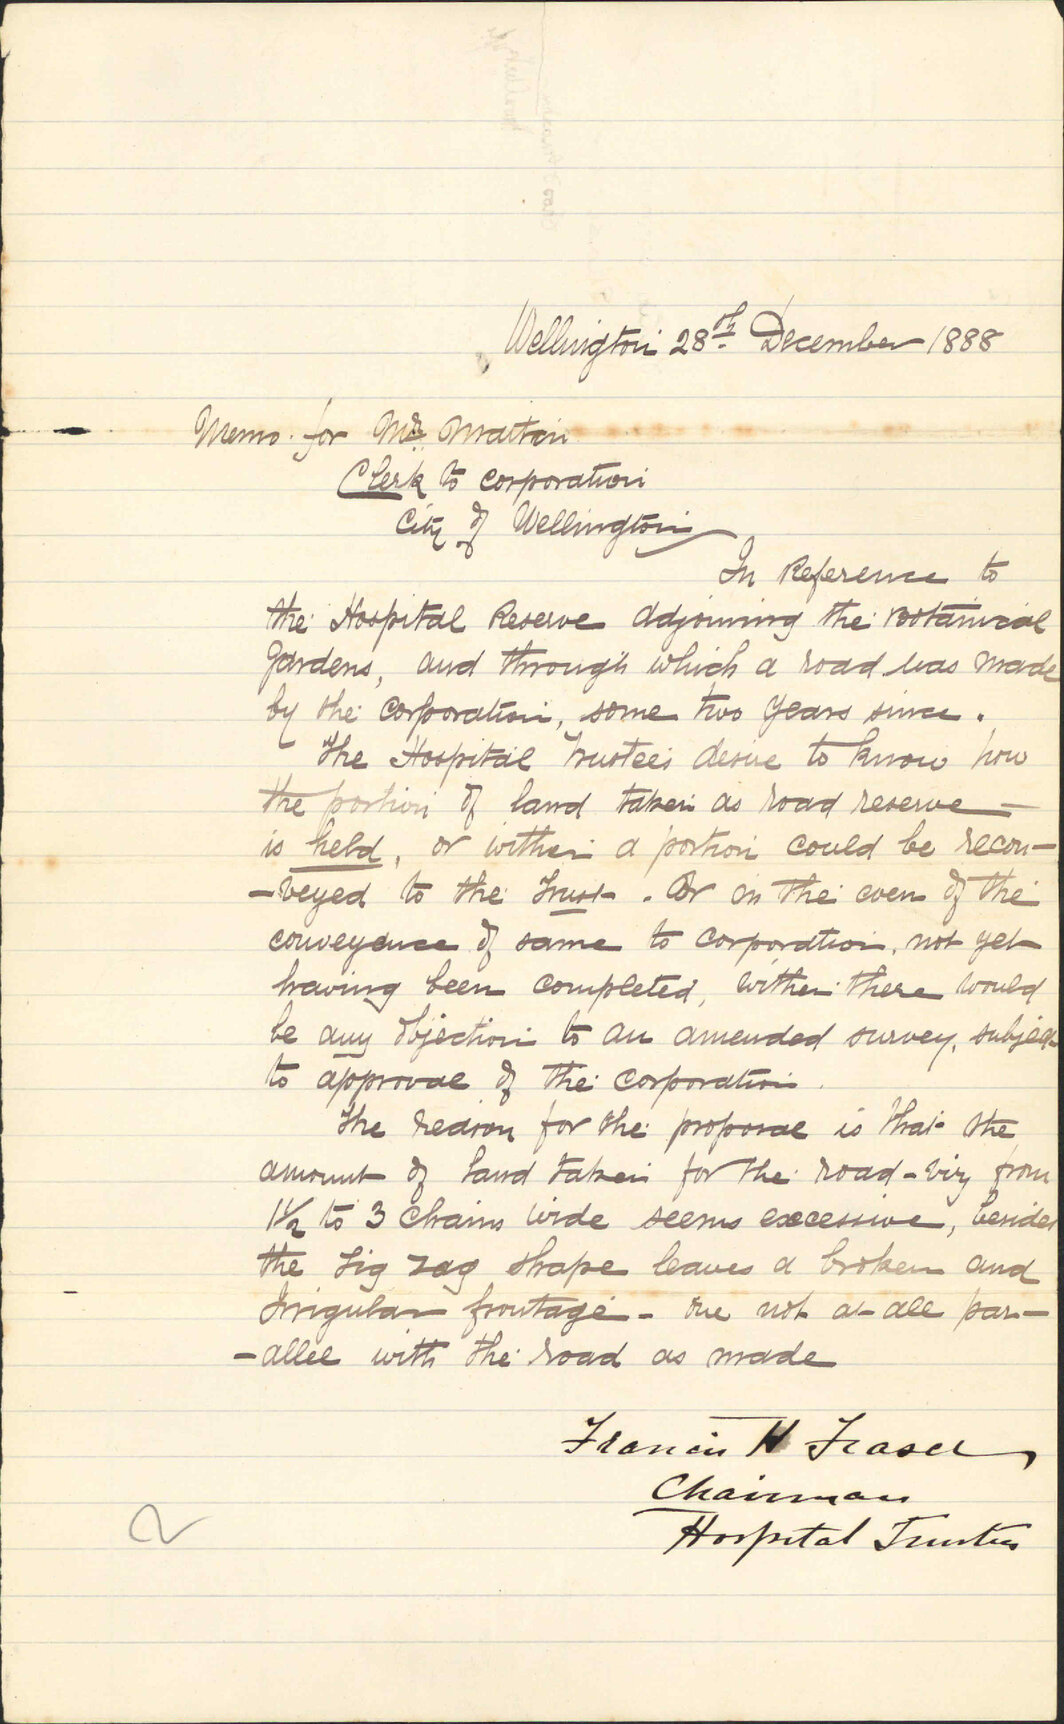 Wellington 28th December 1888
Memo. for Mr.
Clerk to Corporation
City of Wellington
In Reference to
the Hospital Reserve adjoining the Botanical
Gardens, and through which a road was made
by the Corporation, some two years since.
The Hospital Trustees desire to know how
the portion of land taken as road reserve—
is held, or wither a portion could be recon—
—veyed to the Trust. Or in the even of the
conveyance of same to corporation, not yet
having been completed, wither there would
be any objection to an amended survey, subject
to approval of the Corporation.
The reason for the proposal is that the
amount of land taken for the road—viz from
1½ to 3 chains wide seems excessive, besides
the zig zag shape leaves a broken and
Irrigular frontage— one not at all par—
—allel with the road as made
Francis H Fraser,
Chairman
Hospital Trustees
2